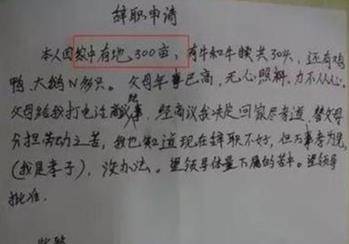 辞职申请
本人因家中有地300亩，有牛和牛犊共30头，还有鸡
鸭、大鹅N多只。父母年事已高，无心照料，力不从心。
父母给我打电话商议此事，经商议我决定回家尽孝道，替父母
分担劳动之苦，我也知道现在辞职不好，但万事孝为先，
(我是孝子)，没办法。望领导体量下属的苦衷。望领导
批准。